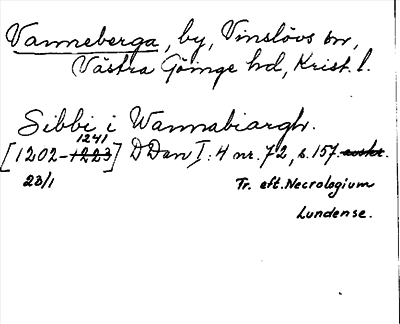 Vanneberga, by, Vinslövs sn,
Västra Göinge hd, Krist. l.
Sibbi i Wannabiargh.
1241
[1202-1223] DDan I:4 nr. 72, s. 157. avskr.
28/1
Tr. eft. Necrologium
Lundense.